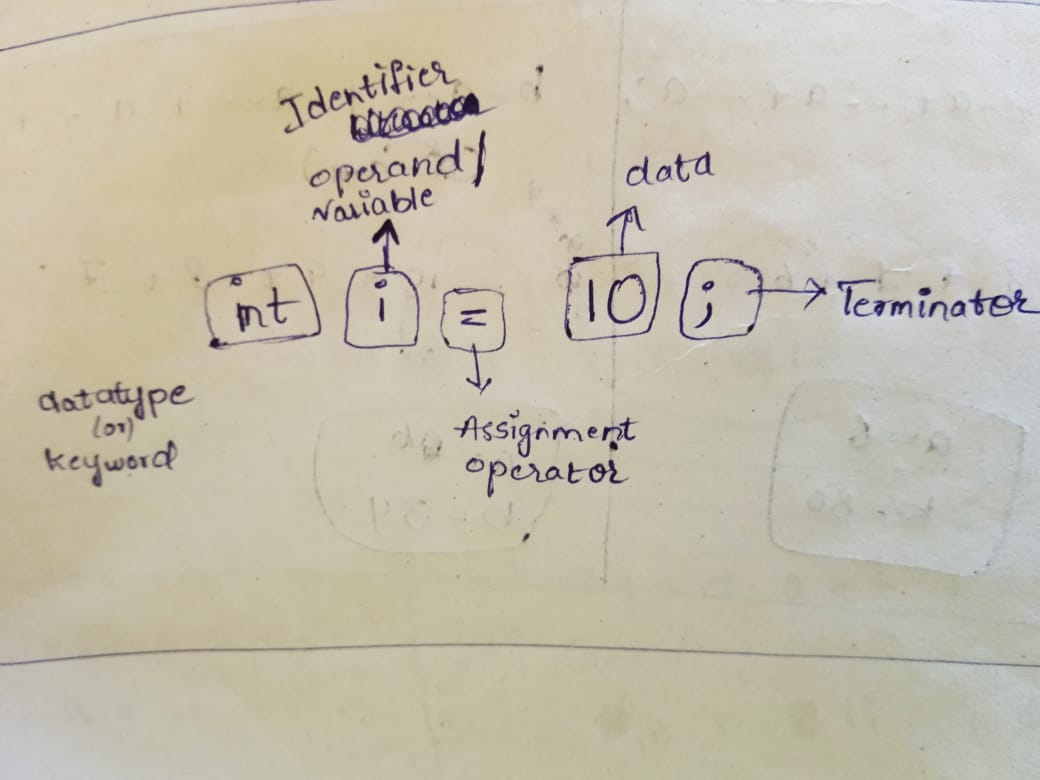 Identifier
operand/
variable
data
int i = 10 ; Terminator
datatype
(or)
keyword
Assignment
operator